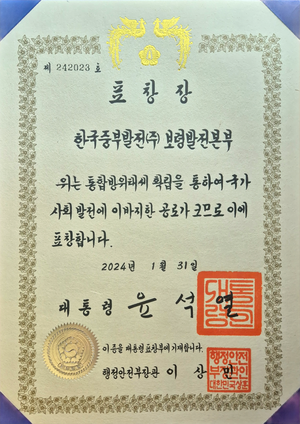 제 242023 호
표창장
한국중부발전(주) 보령발전본부
위는 통합방위태세 확립을 통하여 국가
사회발전에 이바지한 공로가 크므로 이에
표창합니다.
2024년 1월 31일
대통령 윤석열
이 증을 대통령표창부에 기재합니다.
행정안전부장관 이상민
행정안전
부장관인
대한민국상훈